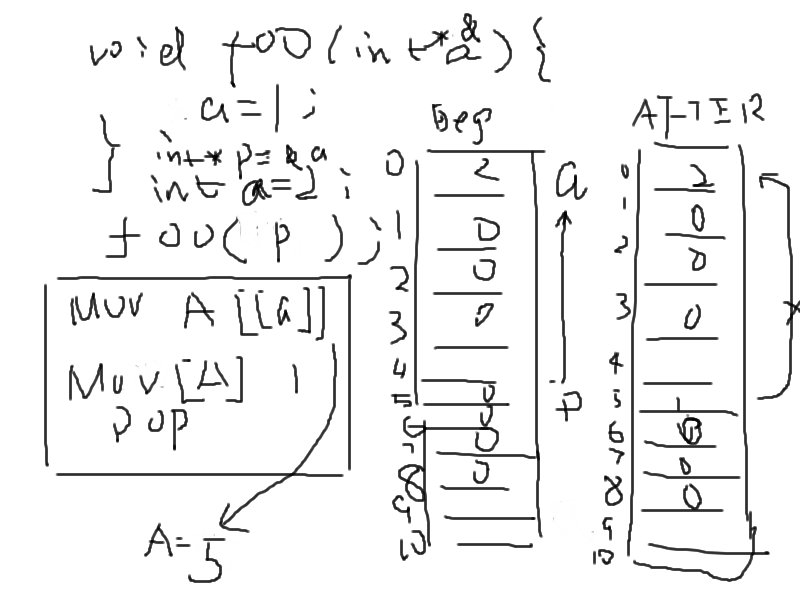 void foo(int*& a) {
a=1;
}
int* p=&a
int a=2;
foo( p );
MOV A [[a]]
MOV [A] 1
POP
A=5
Beg
0 2
1 0
2 0
3 0
4
5 0
6 0
7 0
8 0
9
10
a
P
AFTER
0 2
1 0
2 0
3 0
4
5 1
6 0
7 0
8 0
9
10